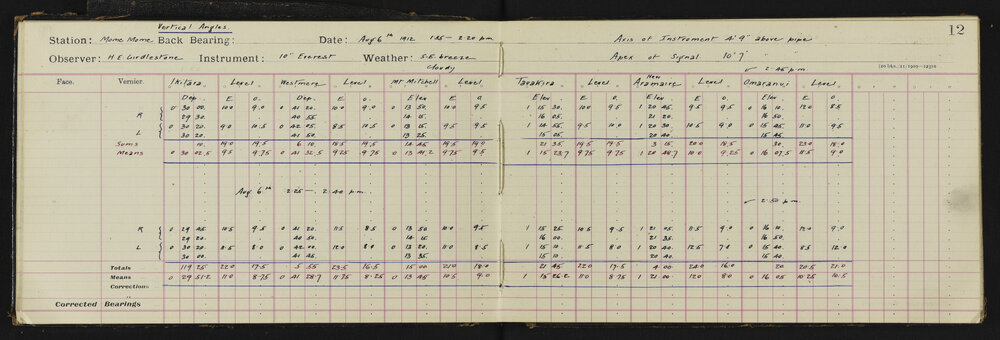 Vertical Angles. 12
Station: Mome Mome Back Bearing: Date: Aug 6th 1912 1.55 — 2.20 pm Axis of Instrument 4' 9" above pipe
Observer: H E Girdlestone Instrument: 10" Everest Weather: S.E. breeze Apex of Signal 10' 7"
Cloudy 2.45 pm
Face. Vernier. Ikitara Level Westmere Level Mt Mitchell Level Tarakira Level New Aramaire Level Omaranui Level
Dep. E O. Dep. E O. Elev E O Elev E O. Elev E O. Elev E O.
0 30 00. 10.0 9.0 0 41 20. 10.0 9.0 0 13 50. 10.0 9.5 1 15 30. 10.0 9.5 1 20 45 9.5 9.5 0 16 10. 12.0 8.5
R 29 30. 40 55. 14 15. 16 05. 21 20. 16 30
0 30 20. 9.0 10.5 0 42 05. 8.5 10.5 0 13 15. 9.5 9.5 1 14 55. 9.5 10.0 1 20 30. 10.5 9.0 0 15 45 11.0 9.5
L 30 20. 41 50. 13 25. 15 05. 20 40. 15 45.
Sums 10. 19.0 19.5 6 10. 18.5 19.5 14 45 19.5 19.0 21 35 19.5 19.5 3 15 20.0 18.5 30 23.0 18.0
Means 0 30 02.5 9.5 9.75 0 41 32.5 9.25 9.75 0 13 41.2 9.75 9.5 1 15 23.7 9.75 9.75 1 20 48.7 10.0 9.25 0 16 07.5 11.5 9.0
Aug 6th 2.25 — 2.40 p.m.
2.50 p.m.
R 0 29 45 10.5 9.5 0 41 20. 11.5 8.5 0 13 50 10.0 9.5 1 15 25 10.5 9.5 1 21 05. 11.5 9.0 0 16 10. 12.0 9.0
29 20. 40 50. 14 15. 16 00. 21 35. 16 50.
L 0 30 20. 11.5 8.0 0 42 00. 12.0 8.0 0 13 20. 11.0 8.5 1 15 10. 11.5 8.0 1 20 40. 12.5 7.0 0 15 40. 8.5 12.0
30 00. 41 45. 13 35. 15 10. 20 40. 15 40.
Totals 119 25 22.0 17.5 5 55 23.5 16.5 15 00 21.0 18.0 21 45 22.0 17.5 4 00 24.0 16.0 20 20.5 21.0
Means 0 29 51.2 11.0 8.75 0 41 28.7 11.75 8.25 0 13 45 10.5 9.0 1 15 26.2 11.0 8.75 1 21 00 12.0 8.0 0 16 05 10.25 10.5
Corrections
Corrected Bearings